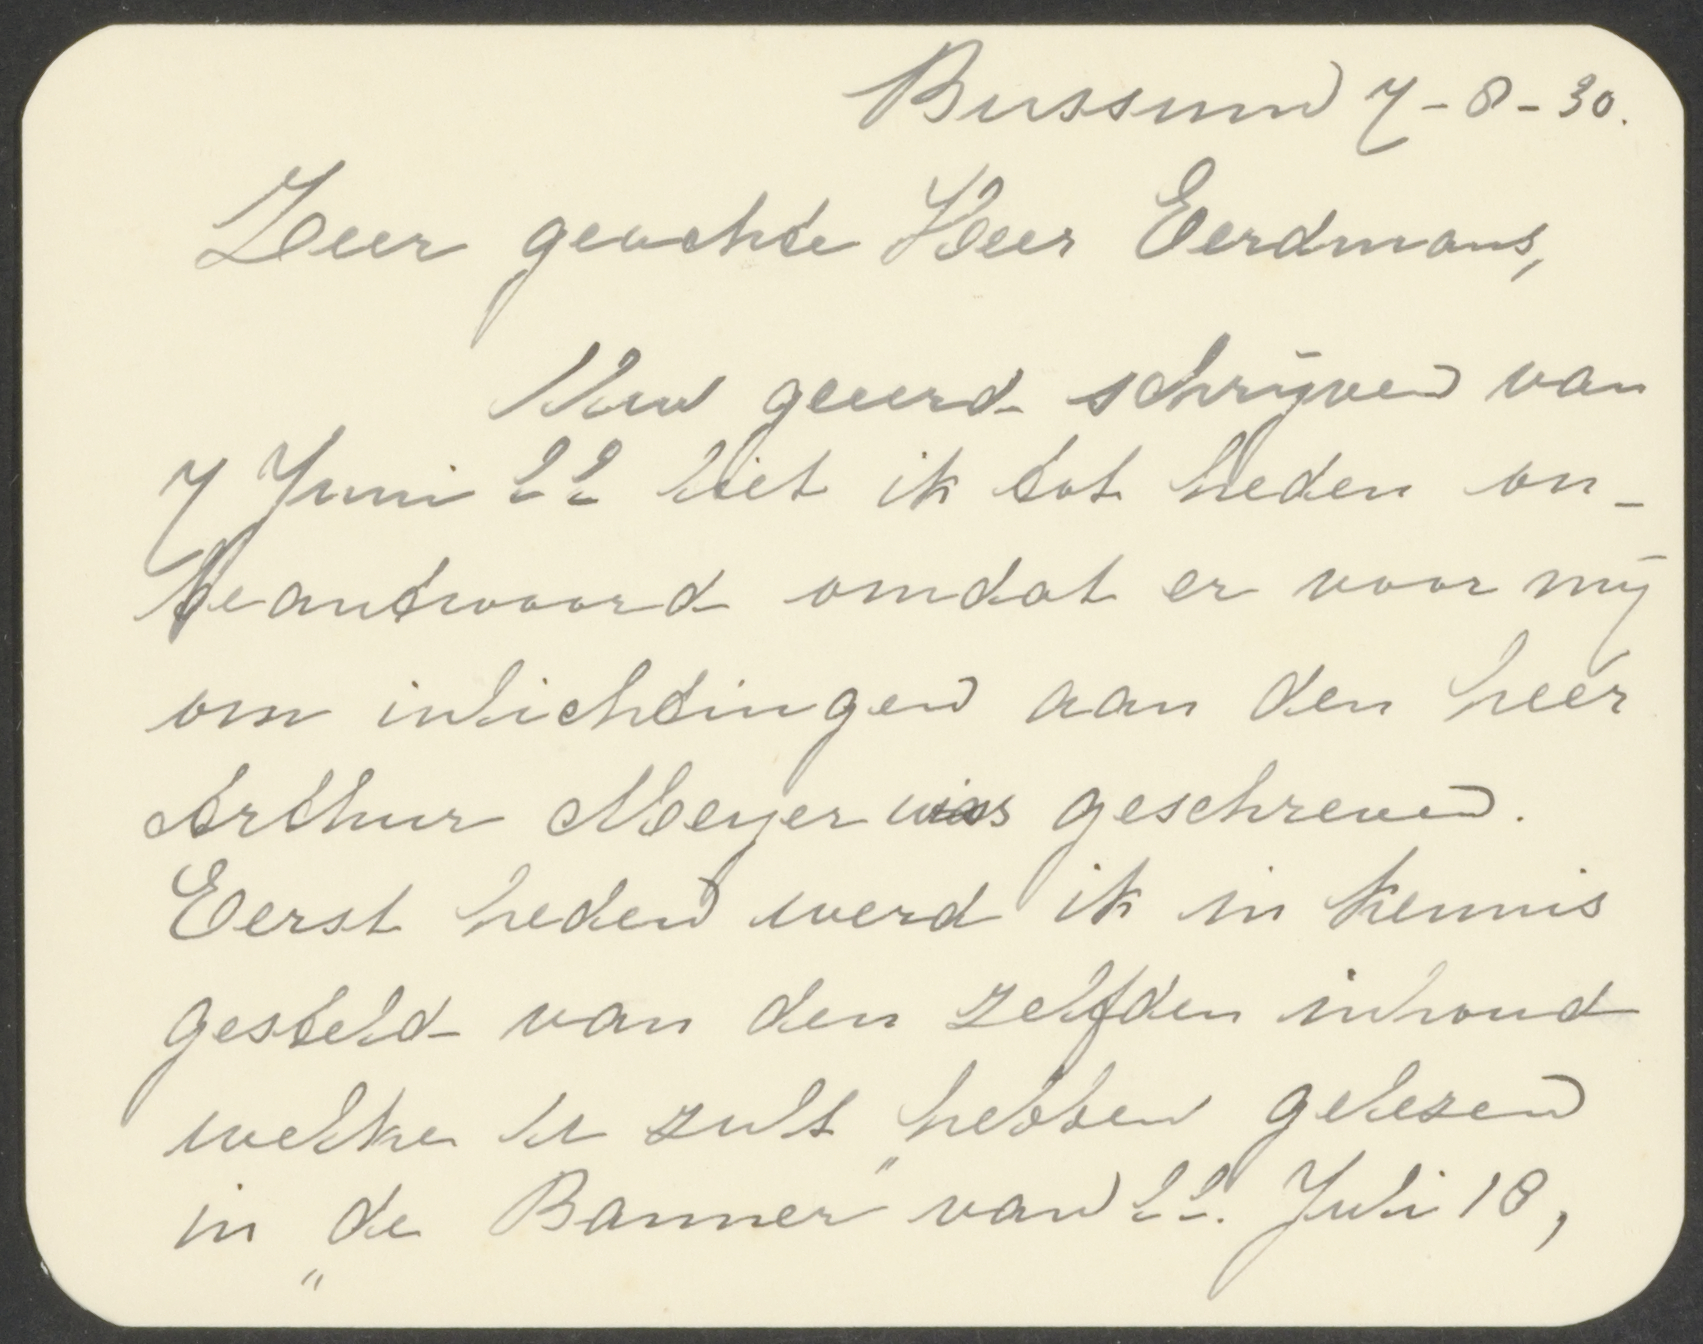 Bussum 7-8-30.
Zeer geachte Heer Eerdmans,
Uw geëerd schrijven van
7 Juni ll liet ik tot heden on-
beantwoord omdat er voor mij
om inlichtingen aan den heer
Arthur Meyer was geschreven.
Eerst heden werd ik in kennis
gesteld van den zelfden inhoud
welke U zult hebben gelezen
in „de Banner" van ll. Juli 18,